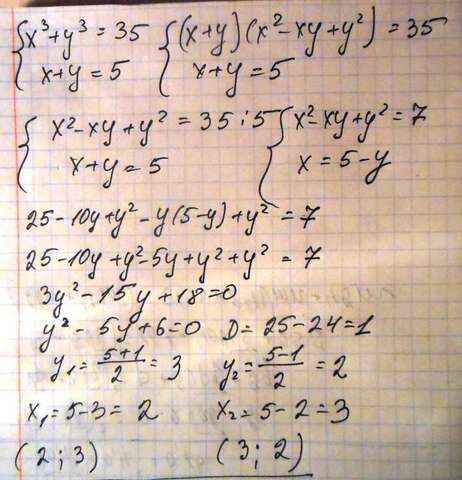 {x³+y³=35 {(x+y)(x²-xy+y²)=35
x+y=5 x+y=5
{x²-xy+y²=35:5 {x²-xy+y²=7
x+y=5 x=5-y
25-10y+y²-y(5-y)+y²=7
25-10y+y²-5y+y²+y²=7
3y²-15y+18=0
y²-5y+6=0 D=25-24=1
y₁=(5+1)/2=3 y₂=(5-1)/2=2
x₁=5-3=2 x₂=5-2=3
(2;3) (3;2)